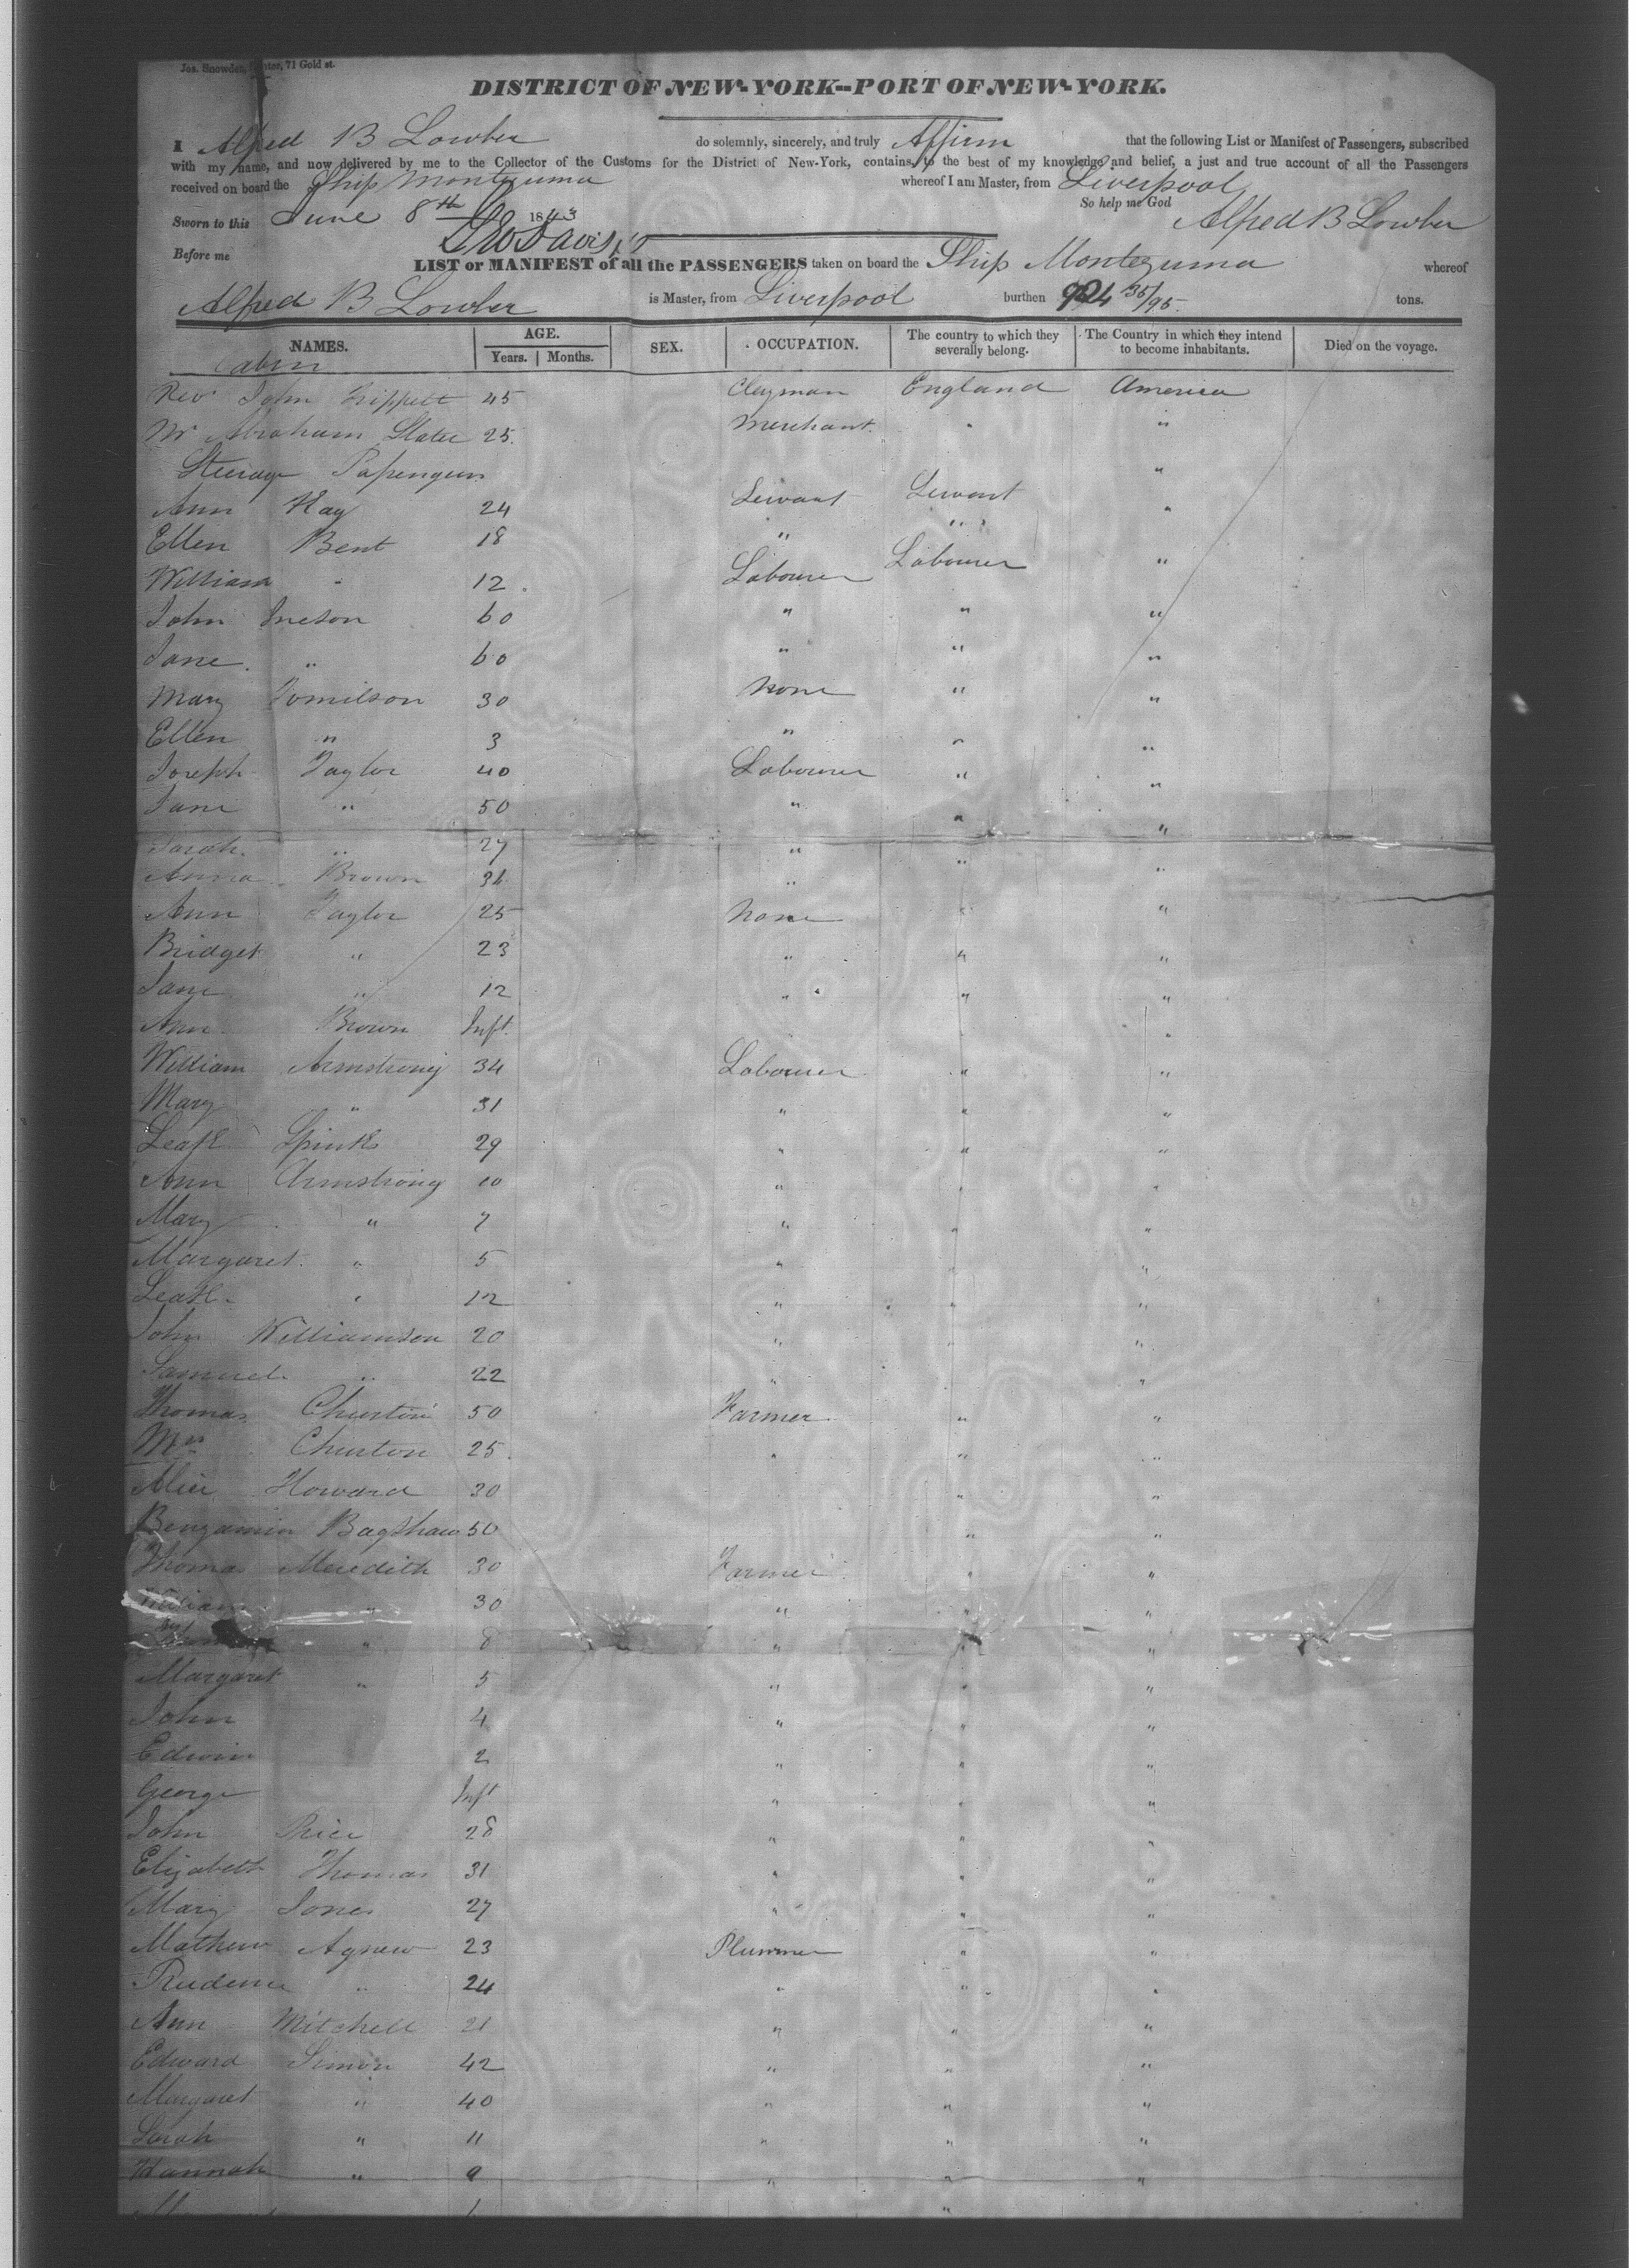 Jos. Snowden, Printer, 71 Gold st.
DISTRICT OF NEW-YORK--PORT OF NEW-YORK.
I Alfred B Lowber do solemnly, sincerely, and truly Affirm that the following List or Manifest of Passengers, subscribed
with my name, and now delivered by me to the Collector of the Customs for the District of New-York, contains, to the best of my knowledge and belief, a just and true account of all the Passengers
received on board the Ship Montezuma whereof I am Master, from Liverpool
So help me God
Sworn to this June 8th 1843 Alfred B Lowber
Before me
LIST or MANIFEST of all the PASSENGERS taken on board the Ship Montezuma whereof
Alfred B Lowber is Master, from Liverpool burthen 924 35/95 tons.
NAMES. AGE. Years. Months. SEX. OCCUPATION. The country to which they severally belong. The Country in which they intend to become inhabitants. Died on the voyage.
Cabin
Rev John 45 Clergman England America
Mr Abraham Slater 25. Merchant. " "
Steerage Passengers "
Ann Hay 24 Servant Servant "
Ellen Bent 18 " "
William " 12 Labourer Labourer "
John Ineson 60 " " "
Jane " 60 " " "
Mary Tomilson 30 None " "
Ellen " 3 " " "
Joseph Taylor 40 Labourer " "
Jane " 50 " " "
Sarah " 27 " " "
Anna Brown 34 " " "
Ann Taylor 25 None " "
Bridget " 23 " " "
Jane " 12 " " "
Ann Brown Inft. " "
William Armstrong 34 Labourer " "
Mary " 31 " " "
Leah Spinks 29 " " "
Ann Armstrong 10 " " "
Mary " 7 " " "
Margaret " 5 " " "
Leah " 12 " " "
John Williamson 20 " " "
Samuel " 22 " "
Thomas Churton 50 Farmer " "
Mrs Churton 25. " " "
Alice Howard 30 " "
Benjamin Bagshaw 50 " "
Thomas Meredith 30 Farmer " "
William " 30 " " "
" 8 " " "
Margaret " 5 " " "
John 4 " " "
Edwin 2 " " "
George Inft " " "
John Price 28 " " "
Elizabeth Thomas 31 " " "
Mary Jones 27 " " "
Mathew Agnew 23 Plummer " "
Prudence " 24 " " "
Ann Mitchell 21 " " "
Edward Simon 42 " " "
Margaret " 40 " " "
Sarah " 11 " " "
Hannah " 9 " " "